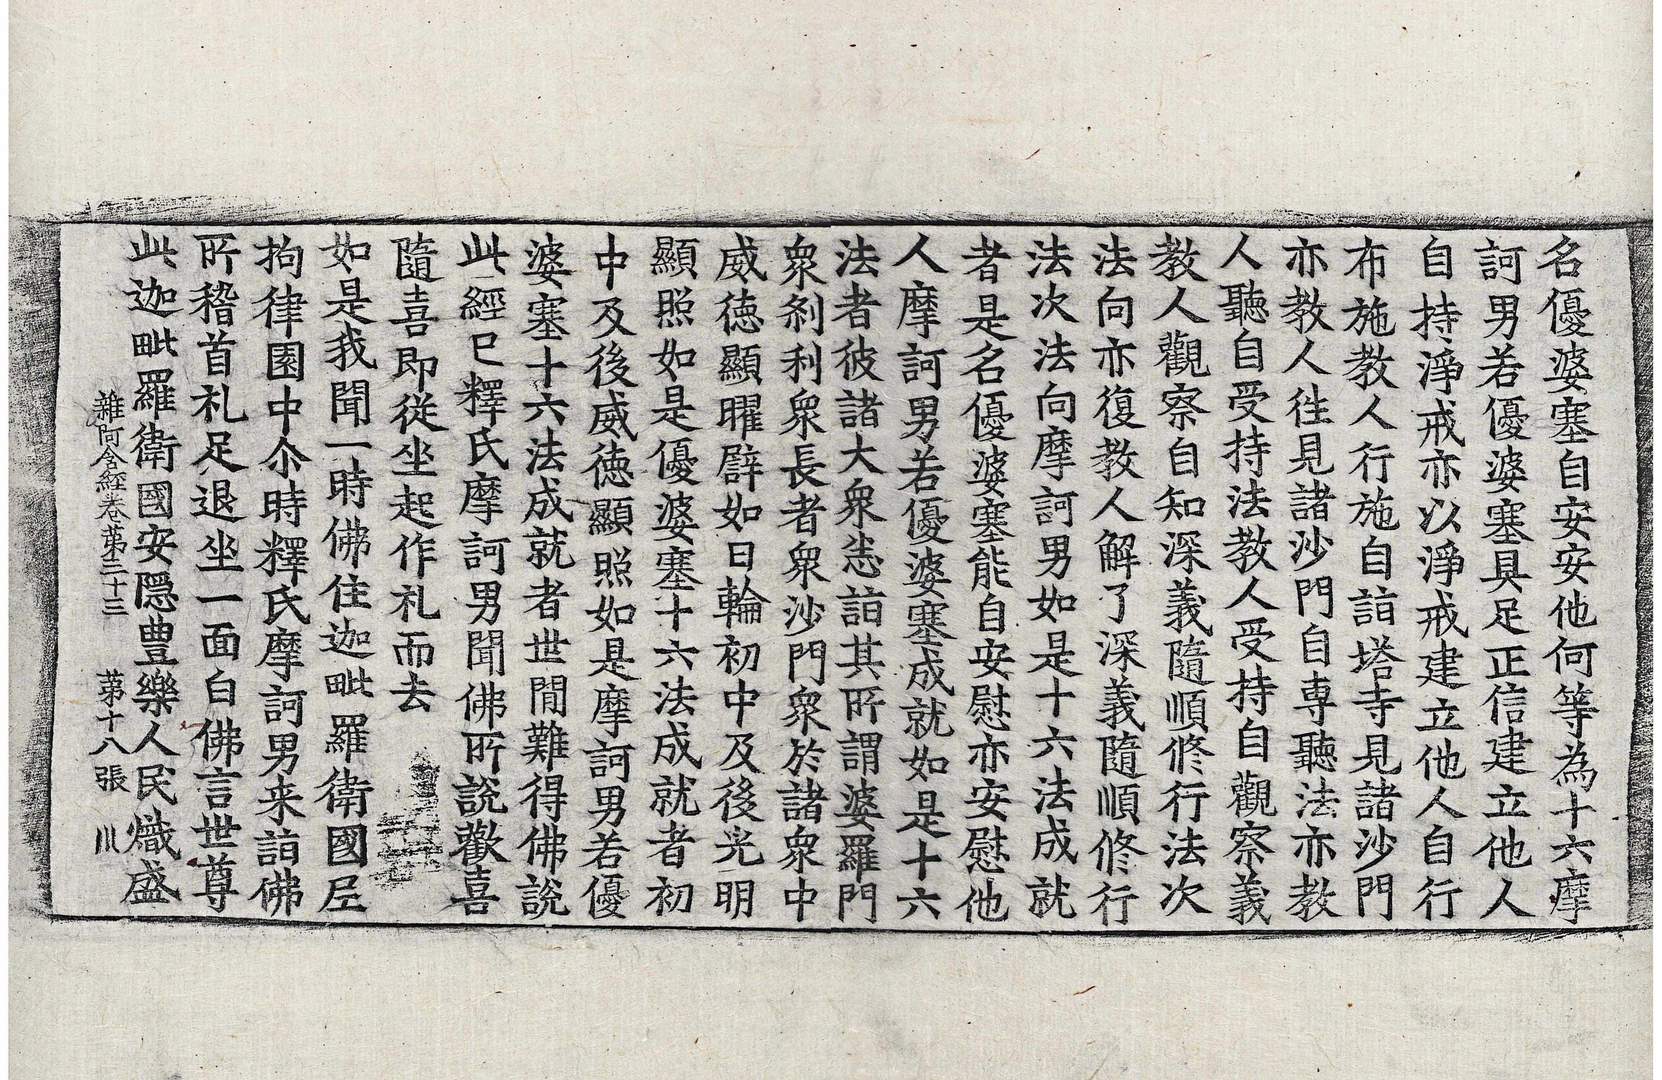 名優婆塞自安安他何等為十六摩
訶男若優婆塞具足正信建立他人
自持淨戒亦以淨戒建立他人自行
布施教人行施自詣塔寺見諸沙門
亦教人徃見諸沙門自専聽法亦教
人聽自受持法教人受持自觀察義
教人觀察自知深義隨順修行法次
法向亦復教人解了深義隨順修行
法次法向摩訶男如是十六法成就
者是名優婆塞能自安慰亦安慰他
人摩訶男若優婆塞成就如是十六
法者彼諸大衆悉詣其所謂婆羅門
衆剎利衆長者衆沙門衆於諸衆中
威徳顯曜譬如日輪初中及後光明
顯照如是優婆塞十六法成就者初
中及後威徳顯照如是摩訶男若優
婆塞十六法成就者世閒難得佛說
此經已釋氏摩訶男聞佛所說歡喜
隨喜即從坐起作礼而去
如是我聞一時佛住迦毗羅衛國尼
拘律園中尒時釋氏摩訶男来詣佛
所稽首礼足退坐一面白佛言世尊
此迦毗羅衛國安隱豊樂人民熾盛
雜阿含經卷苐三十三 苐十八張 川